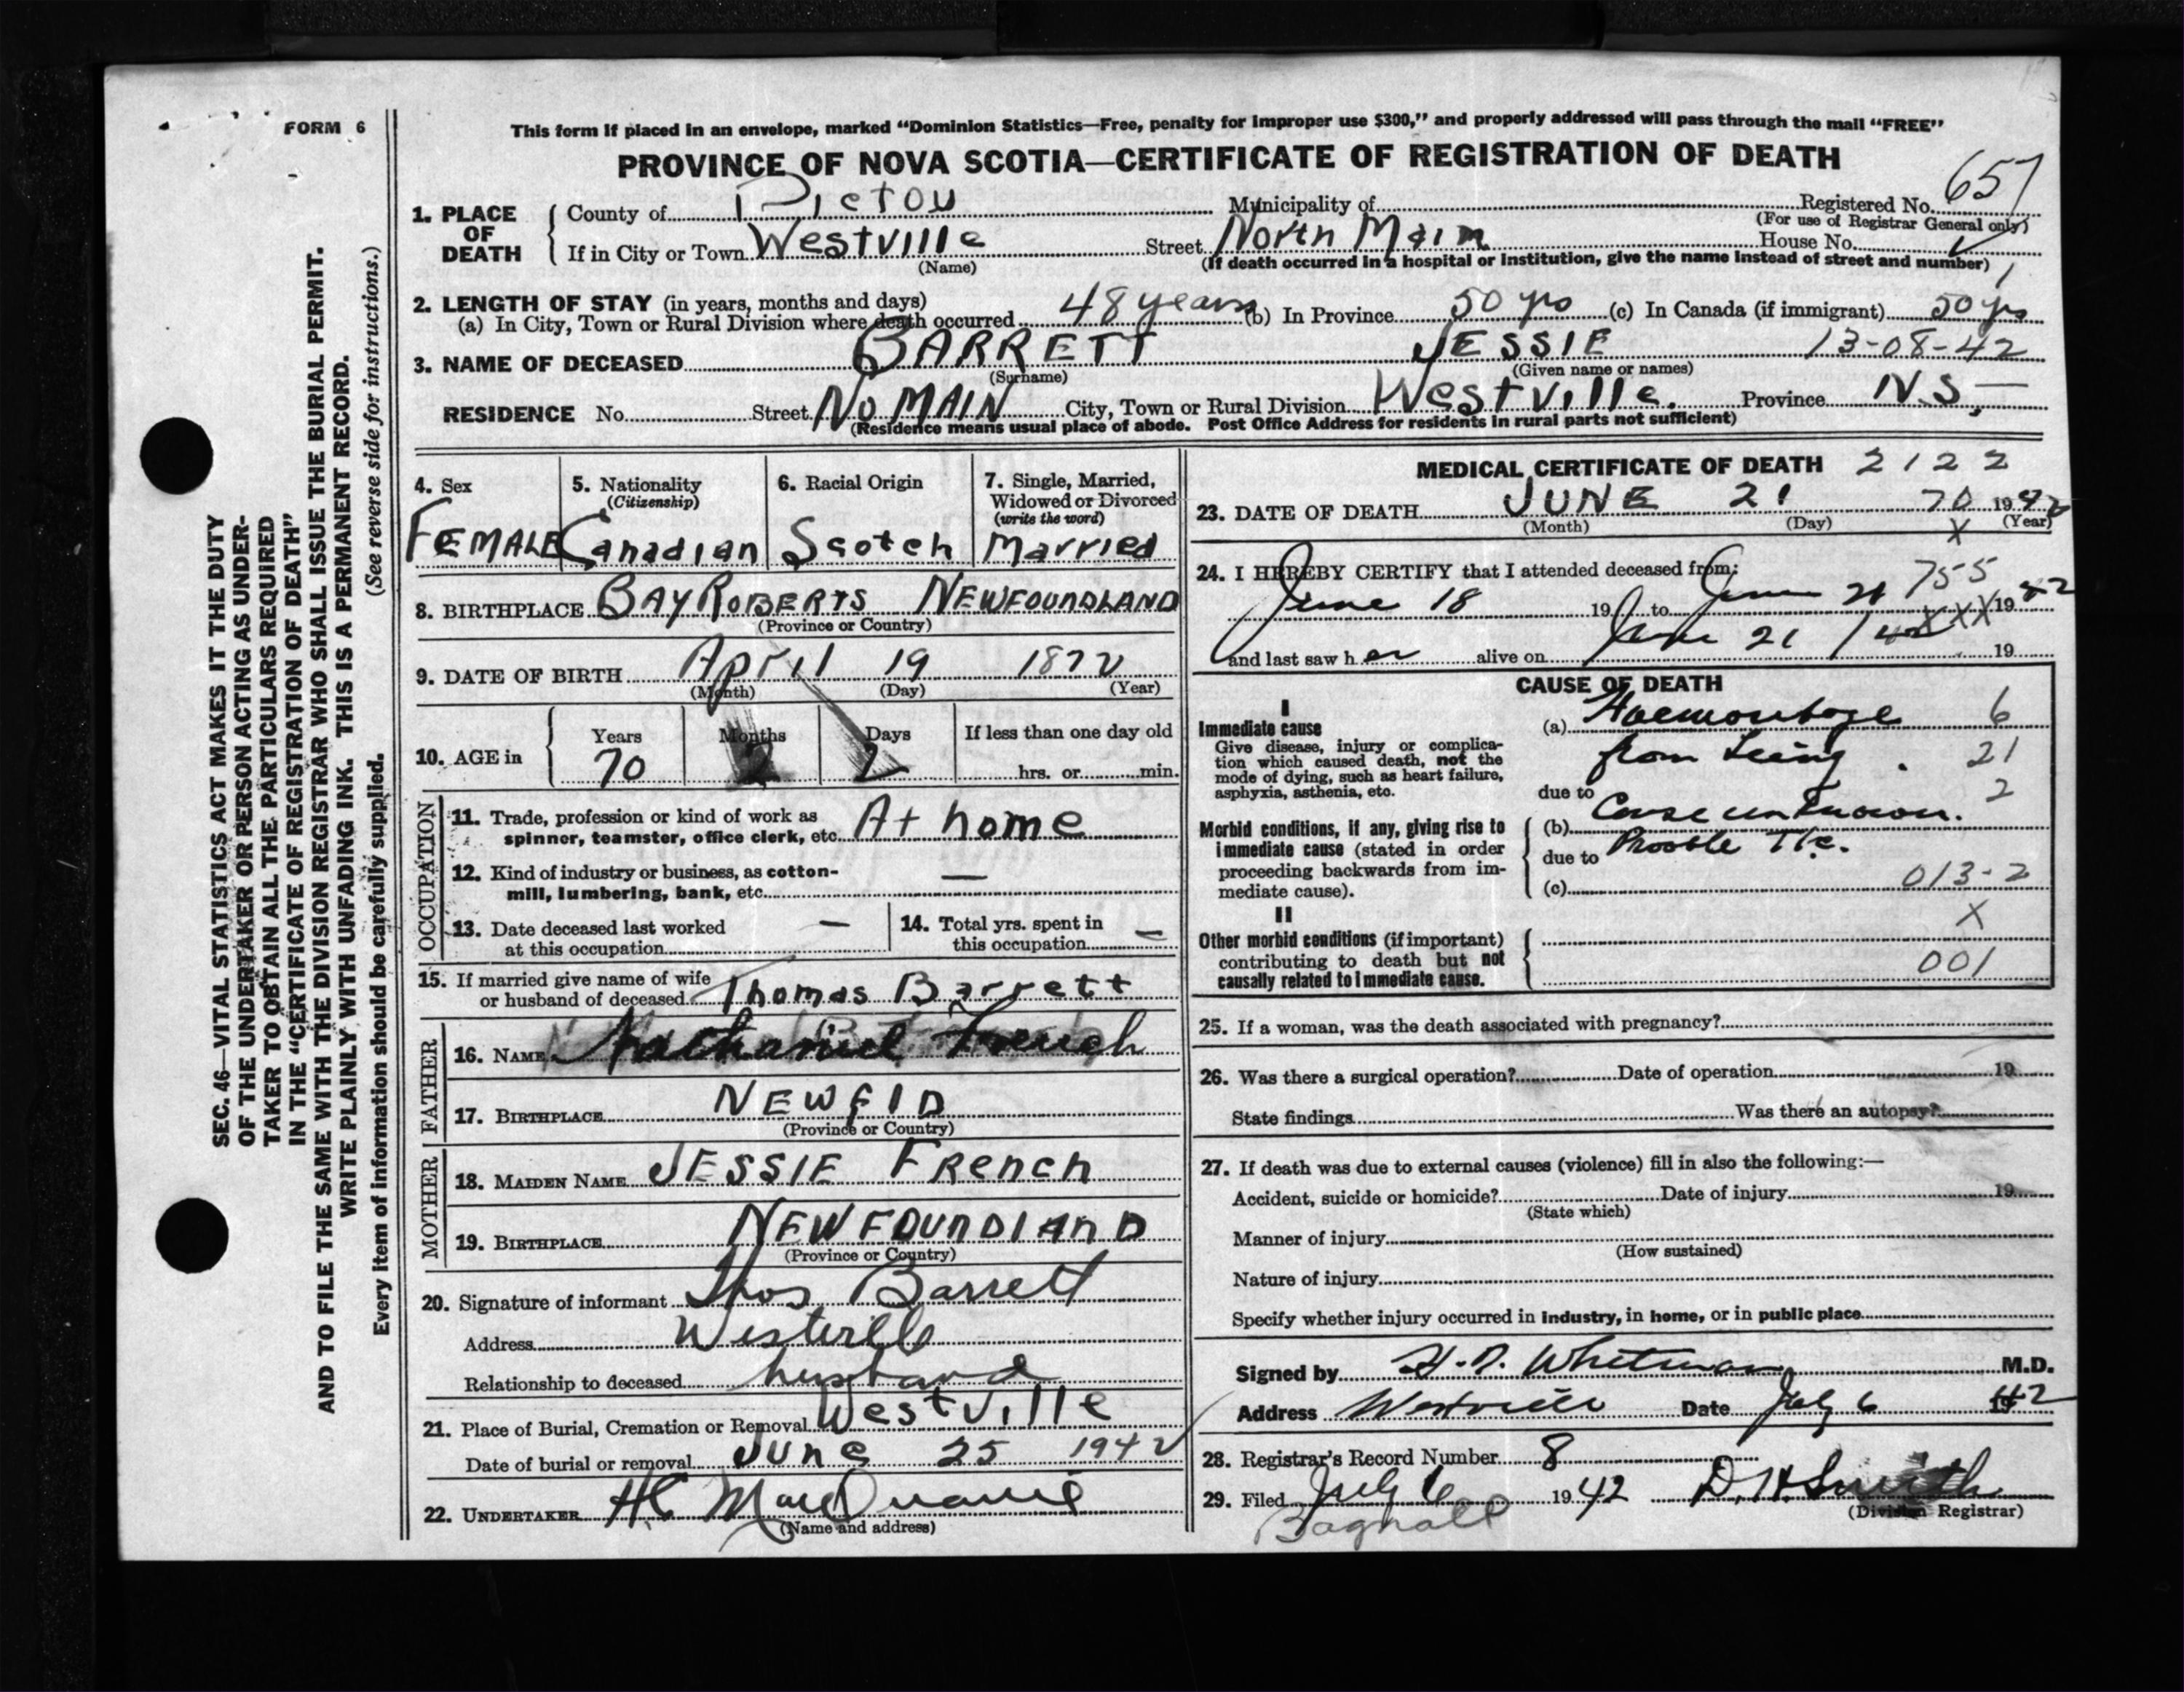 FORM 6
This form if placed in an envelope, marked "Dominion Statistics—Free, penalty for improper use $300," and properly addressed will pass through the mail "FREE"
PROVINCE OF NOVA SCOTIA—CERTIFICATE OF REGISTRATION OF DEATH
657
1. PLACE OF DEATH { County of Pictou Municipality of Registered No.
(For use of Registrar General only)
If in City or Town Westville Street North Main House No.
(Name) (If death occurred in a hospital or institution, give the name instead of street and number)
2. LENGTH OF STAY (in years, months and days)
(a) In City, Town or Rural Division where death occurred 48 years (b) In Province 50 yrs (c) In Canada (if immigrant) 50 yrs
3. NAME OF DECEASED BARRETT JESSIE 13-08-42
(Surname) (Given name or names)
RESIDENCE No. Street No MAIN City, Town or Rural Division Westville. Province N.S.
(Residence means usual place of abode. Post Office Address for residents in rural parts not sufficient)
4. Sex
FEMALE
5. Nationality
(Citizenship)
Canadian
6. Racial Origin
Scotch
7. Single, Married,
Widowed or Divorced
(write the word)
Married
8. BIRTHPLACE BAY ROBERTS NEWFOUNDLAND
(Province or Country)
9. DATE OF BIRTH April 19 1872
(Month) (Day) (Year)
10. AGE in { Years Months Days If less than one day old
70 2 2 hrs. or min.
OCCUPATION
11. Trade, profession or kind of work as
spinner, teamster, office clerk, etc. At home
12. Kind of industry or business, as cotton-
mill, lumbering, bank, etc. —
13. Date deceased last worked
at this occupation —
14. Total yrs. spent in
this occupation —
15. If married give name of wife
or husband of deceased Thomas Barrett
FATHER
16. NAME Nathaniel French
17. BIRTHPLACE NEWFLD
(Province or Country)
MOTHER
18. MAIDEN NAME JESSIE FRENCH
19. BIRTHPLACE NEWFOUNDLAND
(Province or Country)
20. Signature of informant Thos Barrett
Address Westville
Relationship to deceased husband
21. Place of Burial, Cremation or Removal Westville
Date of burial or removal June 25 1942
22. UNDERTAKER
(Name and address)
MEDICAL CERTIFICATE OF DEATH 2122
23. DATE OF DEATH JUNE 21 70 1942
(Month) (Day) (Year)
X
24. I HEREBY CERTIFY that I attended deceased from:
755
June 18 19 to June 21 1942
XXX
and last saw her alive on June 21 19
CAUSE OF DEATH
I
Immediate cause
Give disease, injury or complica-
tion which caused death, not the
mode of dying, such as heart failure,
asphyxia, asthenia, etc.
(a) Haemorrhage 6
from Lung. 21
due to 2
Morbid conditions, if any, giving rise to
immediate cause (stated in order
proceeding backwards from im-
mediate cause).
(b) Cause unknown.
due to Probable
(c) 013-2
II X
Other morbid conditions (if important)
contributing to death but not
causally related to immediate cause.
001
25. If a woman, was the death associated with pregnancy?
26. Was there a surgical operation? Date of operation 19
State findings Was there an autopsy?
27. If death was due to external causes (violence) fill in also the following:—
Accident, suicide or homicide? Date of injury 19
(State which)
Manner of injury
(How sustained)
Nature of injury
Specify whether injury occurred in industry, in home, or in public place
Signed by Whitman M.D.
Address Westville Date July 6 42
28. Registrar's Record Number 8
29. Filed July 6 1942 D. H. Smith
(Division Registrar)
Bagnall
SEC. 46—VITAL STATISTICS ACT MAKES IT THE DUTY
OF THE UNDERTAKER OR PERSON ACTING AS UNDER-
TAKER TO OBTAIN ALL THE PARTICULARS REQUIRED
IN THE "CERTIFICATE OF REGISTRATION OF DEATH"
AND TO FILE THE SAME WITH THE DIVISION REGISTRAR WHO SHALL ISSUE THE BURIAL PERMIT.
WRITE PLAINLY WITH UNFADING INK. THIS IS A PERMANENT RECORD.
Every item of information should be carefully supplied. (See reverse side for instructions.)